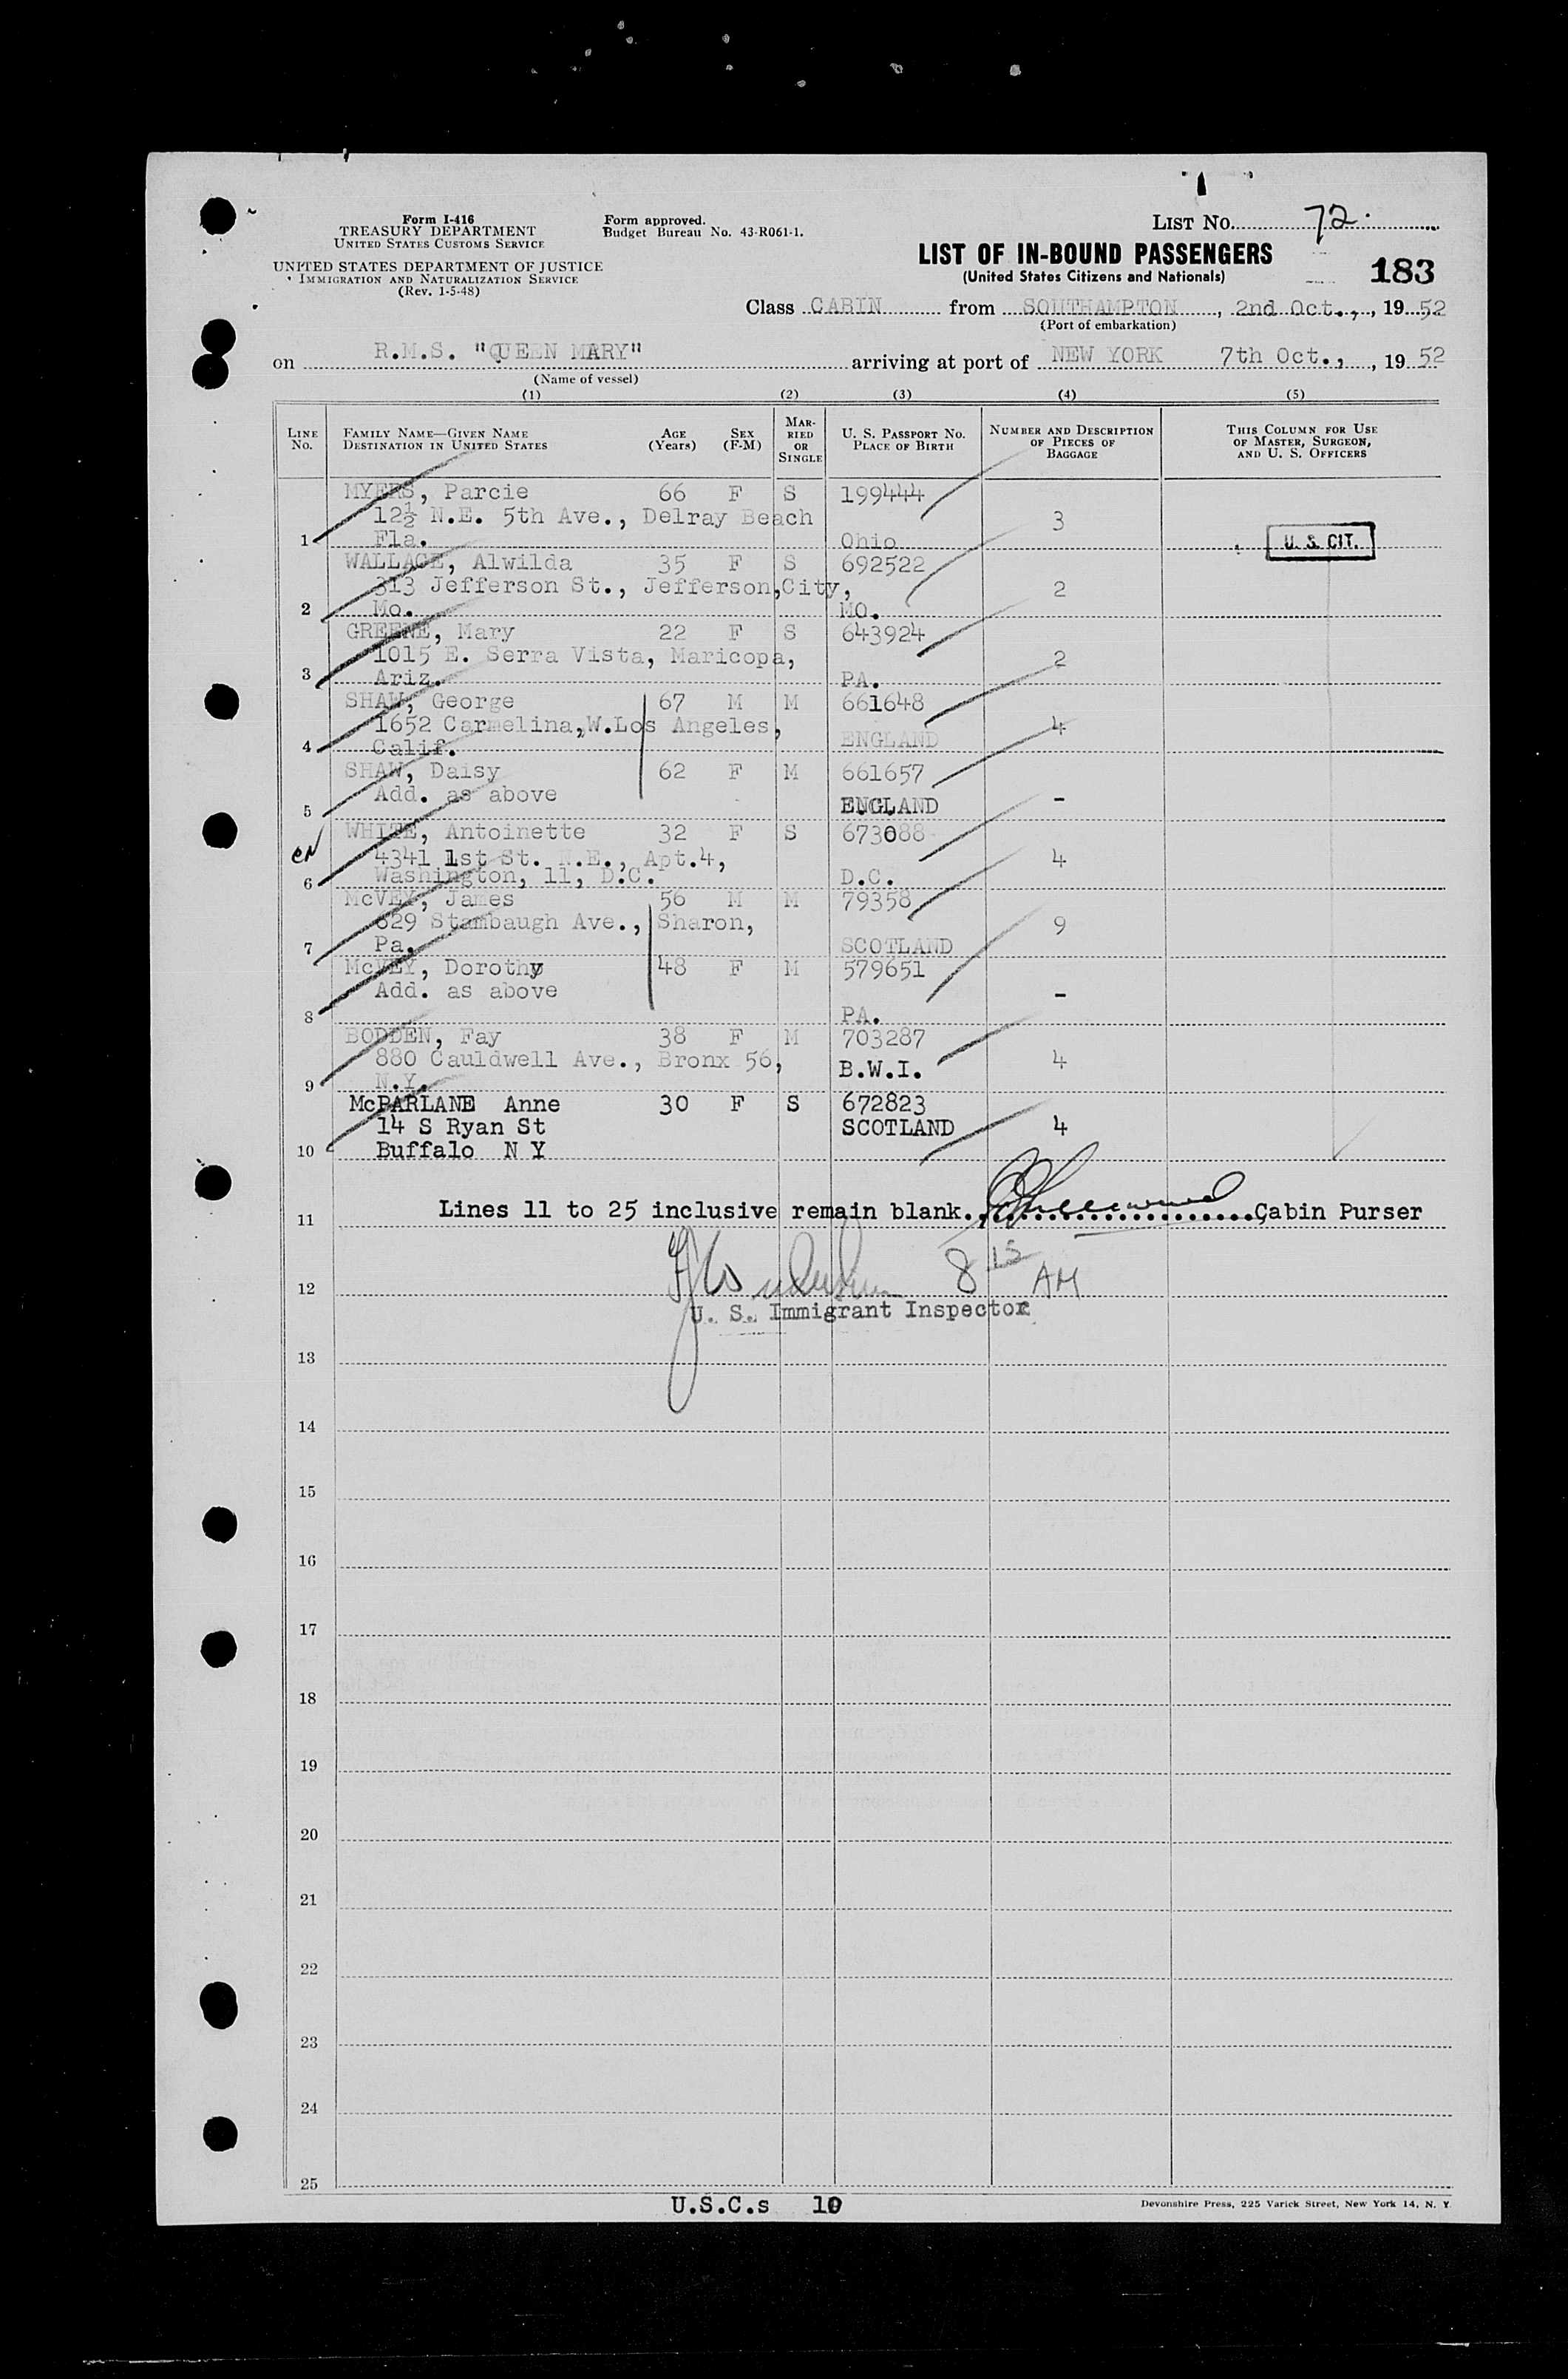 Form I-416
TREASURY DEPARTMENT
UNITED STATES CUSTOMS SERVICE
UNITED STATES DEPARTMENT OF JUSTICE
IMMIGRATION AND NATURALIZATION SERVICE
(Rev. 1-5-48)
Form approved.
Budget Bureau No. 43-R061-1.
LIST No. 72.
LIST OF IN-BOUND PASSENGERS
(United States Citizens and Nationals)
183
Class CABIN from SOUTHAMPTON, 2nd Oct., , 19 52
(Port of embarkation)
on R.M.S. "QUEEN MARY" arriving at port of NEW YORK 7th Oct., , 19 52
(Name of vessel)
(1) (2) (3) (4) (5)
LINE No. FAMILY NAME—GIVEN NAME DESTINATION IN UNITED STATES AGE (Years) SEX (F-M) MARRIED OR SINGLE U. S. PASSPORT No. PLACE OF BIRTH NUMBER AND DESCRIPTION OF PIECES OF BAGGAGE THIS COLUMN FOR USE OF MASTER, SURGEON, AND U. S. OFFICERS
MYERS, Parcie 66 F S 199444
12½ N.E. 5th Ave., Delray Beach 3
1 Fla. Ohio U. S. CIT.
WALLACE, Alwilda 35 F S 692522
313 Jefferson St., Jefferson,City, 2
2 Mo. MO.
GREENE, Mary 22 F S 643924
1015 E. Serra Vista, Maricopa, 2
3 Ariz. PA.
SHAW, George 67 M M 661648
1652 Carmelina,W.Los Angeles, 4
4 Calif. ENGLAND
SHAW, Daisy 62 F M 661657
Add. as above -
5 ENGLAND
WHITE, Antoinette 32 F S 673088
4341 1st St. N.E., Apt.4, 4
6 Washington, 11, D.C. D.C.
McVEY, James 56 M M 79358
629 Stambaugh Ave., Sharon, 9
7 Pa. SCOTLAND
McVEY, Dorothy 48 F M 579651
Add. as above -
8 PA.
BODDEN, Fay 38 F M 703287
880 Cauldwell Ave., Bronx 56, B.W.I. 4
9 N.Y.
McPARLANE Anne 30 F S 672823
14 S Ryan St SCOTLAND 4
10 Buffalo N Y
11 Lines 11 to 25 inclusive remain blank. Cabin Purser
12 8 15 AM
U. S. Immigrant Inspector
13
14
15
16
17
18
19
20
21
22
23
24
25
U.S.C.s 10
Devonshire Press, 225 Varick Street, New York 14, N. Y.